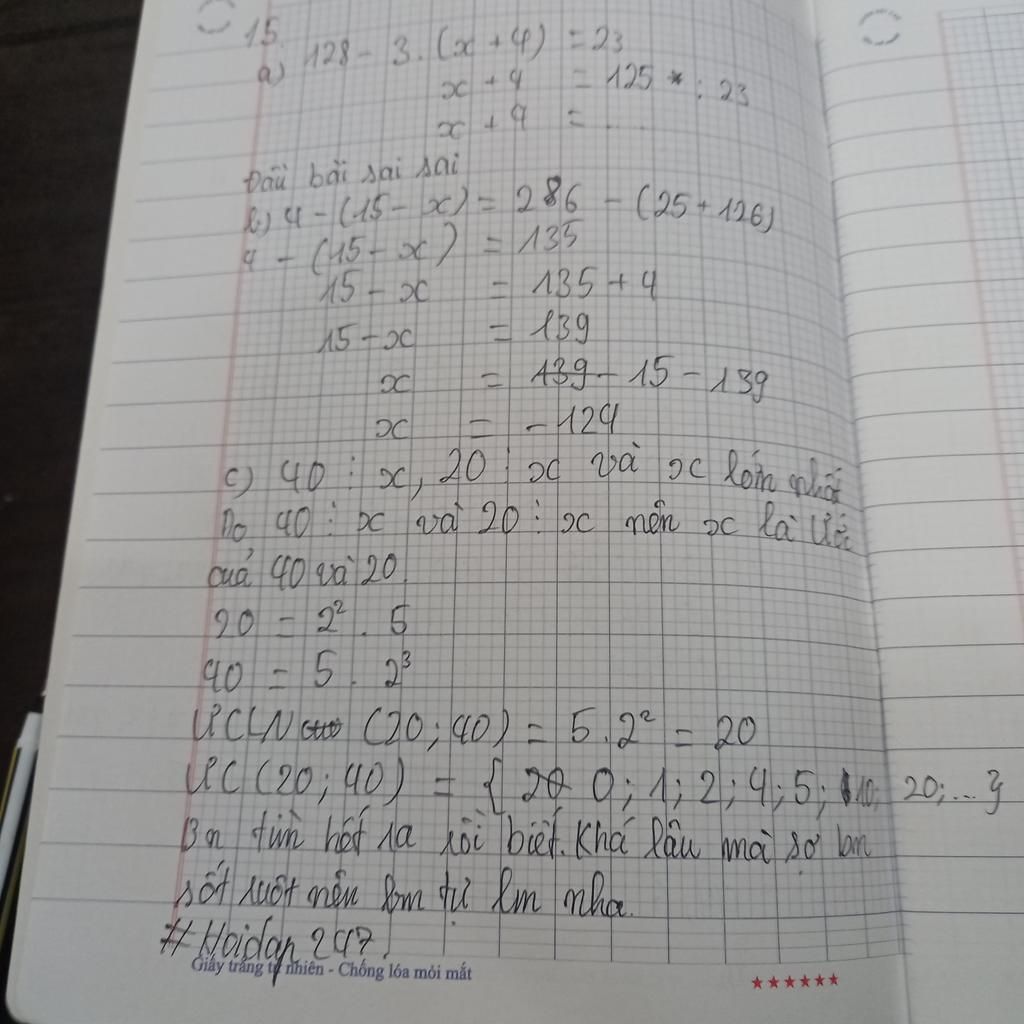 15.
a) 128 - 3. (x + 4) = 23
x + 4 = 125 : 23
x + 4 = ...
Đầu bài sai sai
b) 4 - (15 - x) = 286 - (25 + 126)
4 - (15 - x) = 135
15 - x = 135 + 4
15 - x = 139
x = 139 - 15 - 139
x = - 124
c) 40 ⋮ x, 20 ⋮ x và x lớn nhất
Do 40 ⋮ x và 20 ⋮ x nên x là ƯC
của 40 và 20
20 = 2² . 5
40 = 5 . 2³
ƯCLN (20; 40) = 5. 2² = 20
ƯC (20; 40) = { 0; 1; 2; 4; 5; 10; 20; ... }
Bn tìm hết ra rồi biết. Khá lâu mà sợ bn
sốt ruột nên bm tự lm nha.
#Hoidap247.
Giấy trắng tự nhiên - Chống lóa mỏi mắt